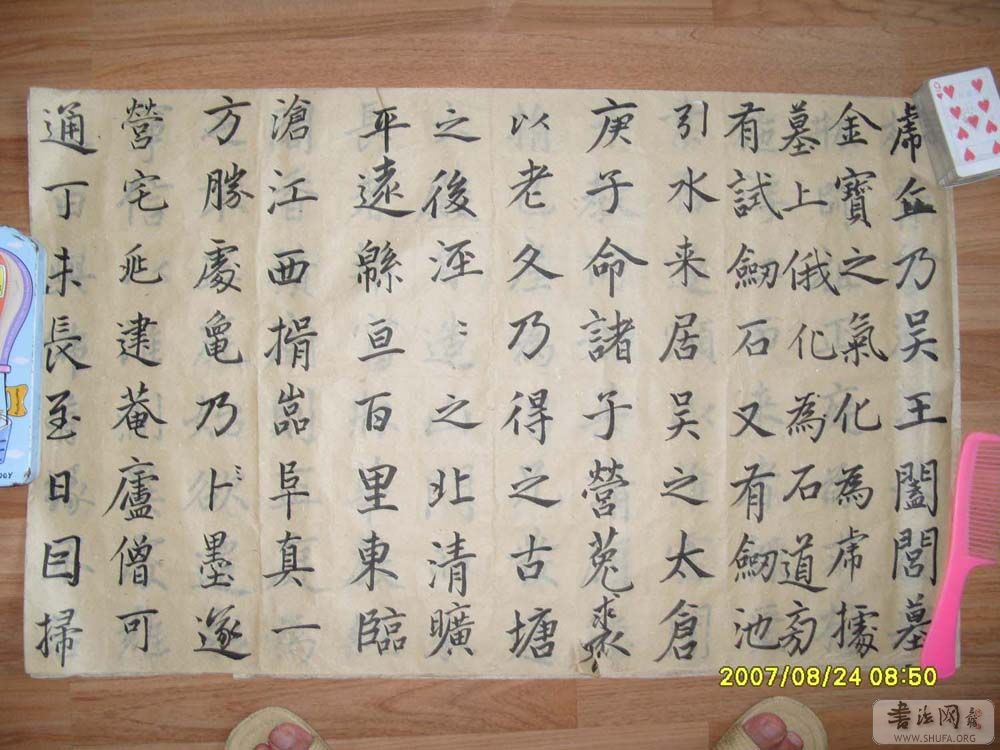 虎丘乃吴王闔閭墓
金寶之氣化為虎據
墓上俄化為石道旁
有試劒石又有劒池
引水来居吴之太倉
庚子命諸子營菟裘
以老久乃得之古塘
之後涇〻之北清曠
平遠緜亘百里東臨
滄江西揖崑阜真一
方勝處亀乃卜〻墨遂
營宅兆建菴廬僧可
通丁未長至日囙掃
2007/08/24 08:50
书法网
WWW.SHUFA.ORG